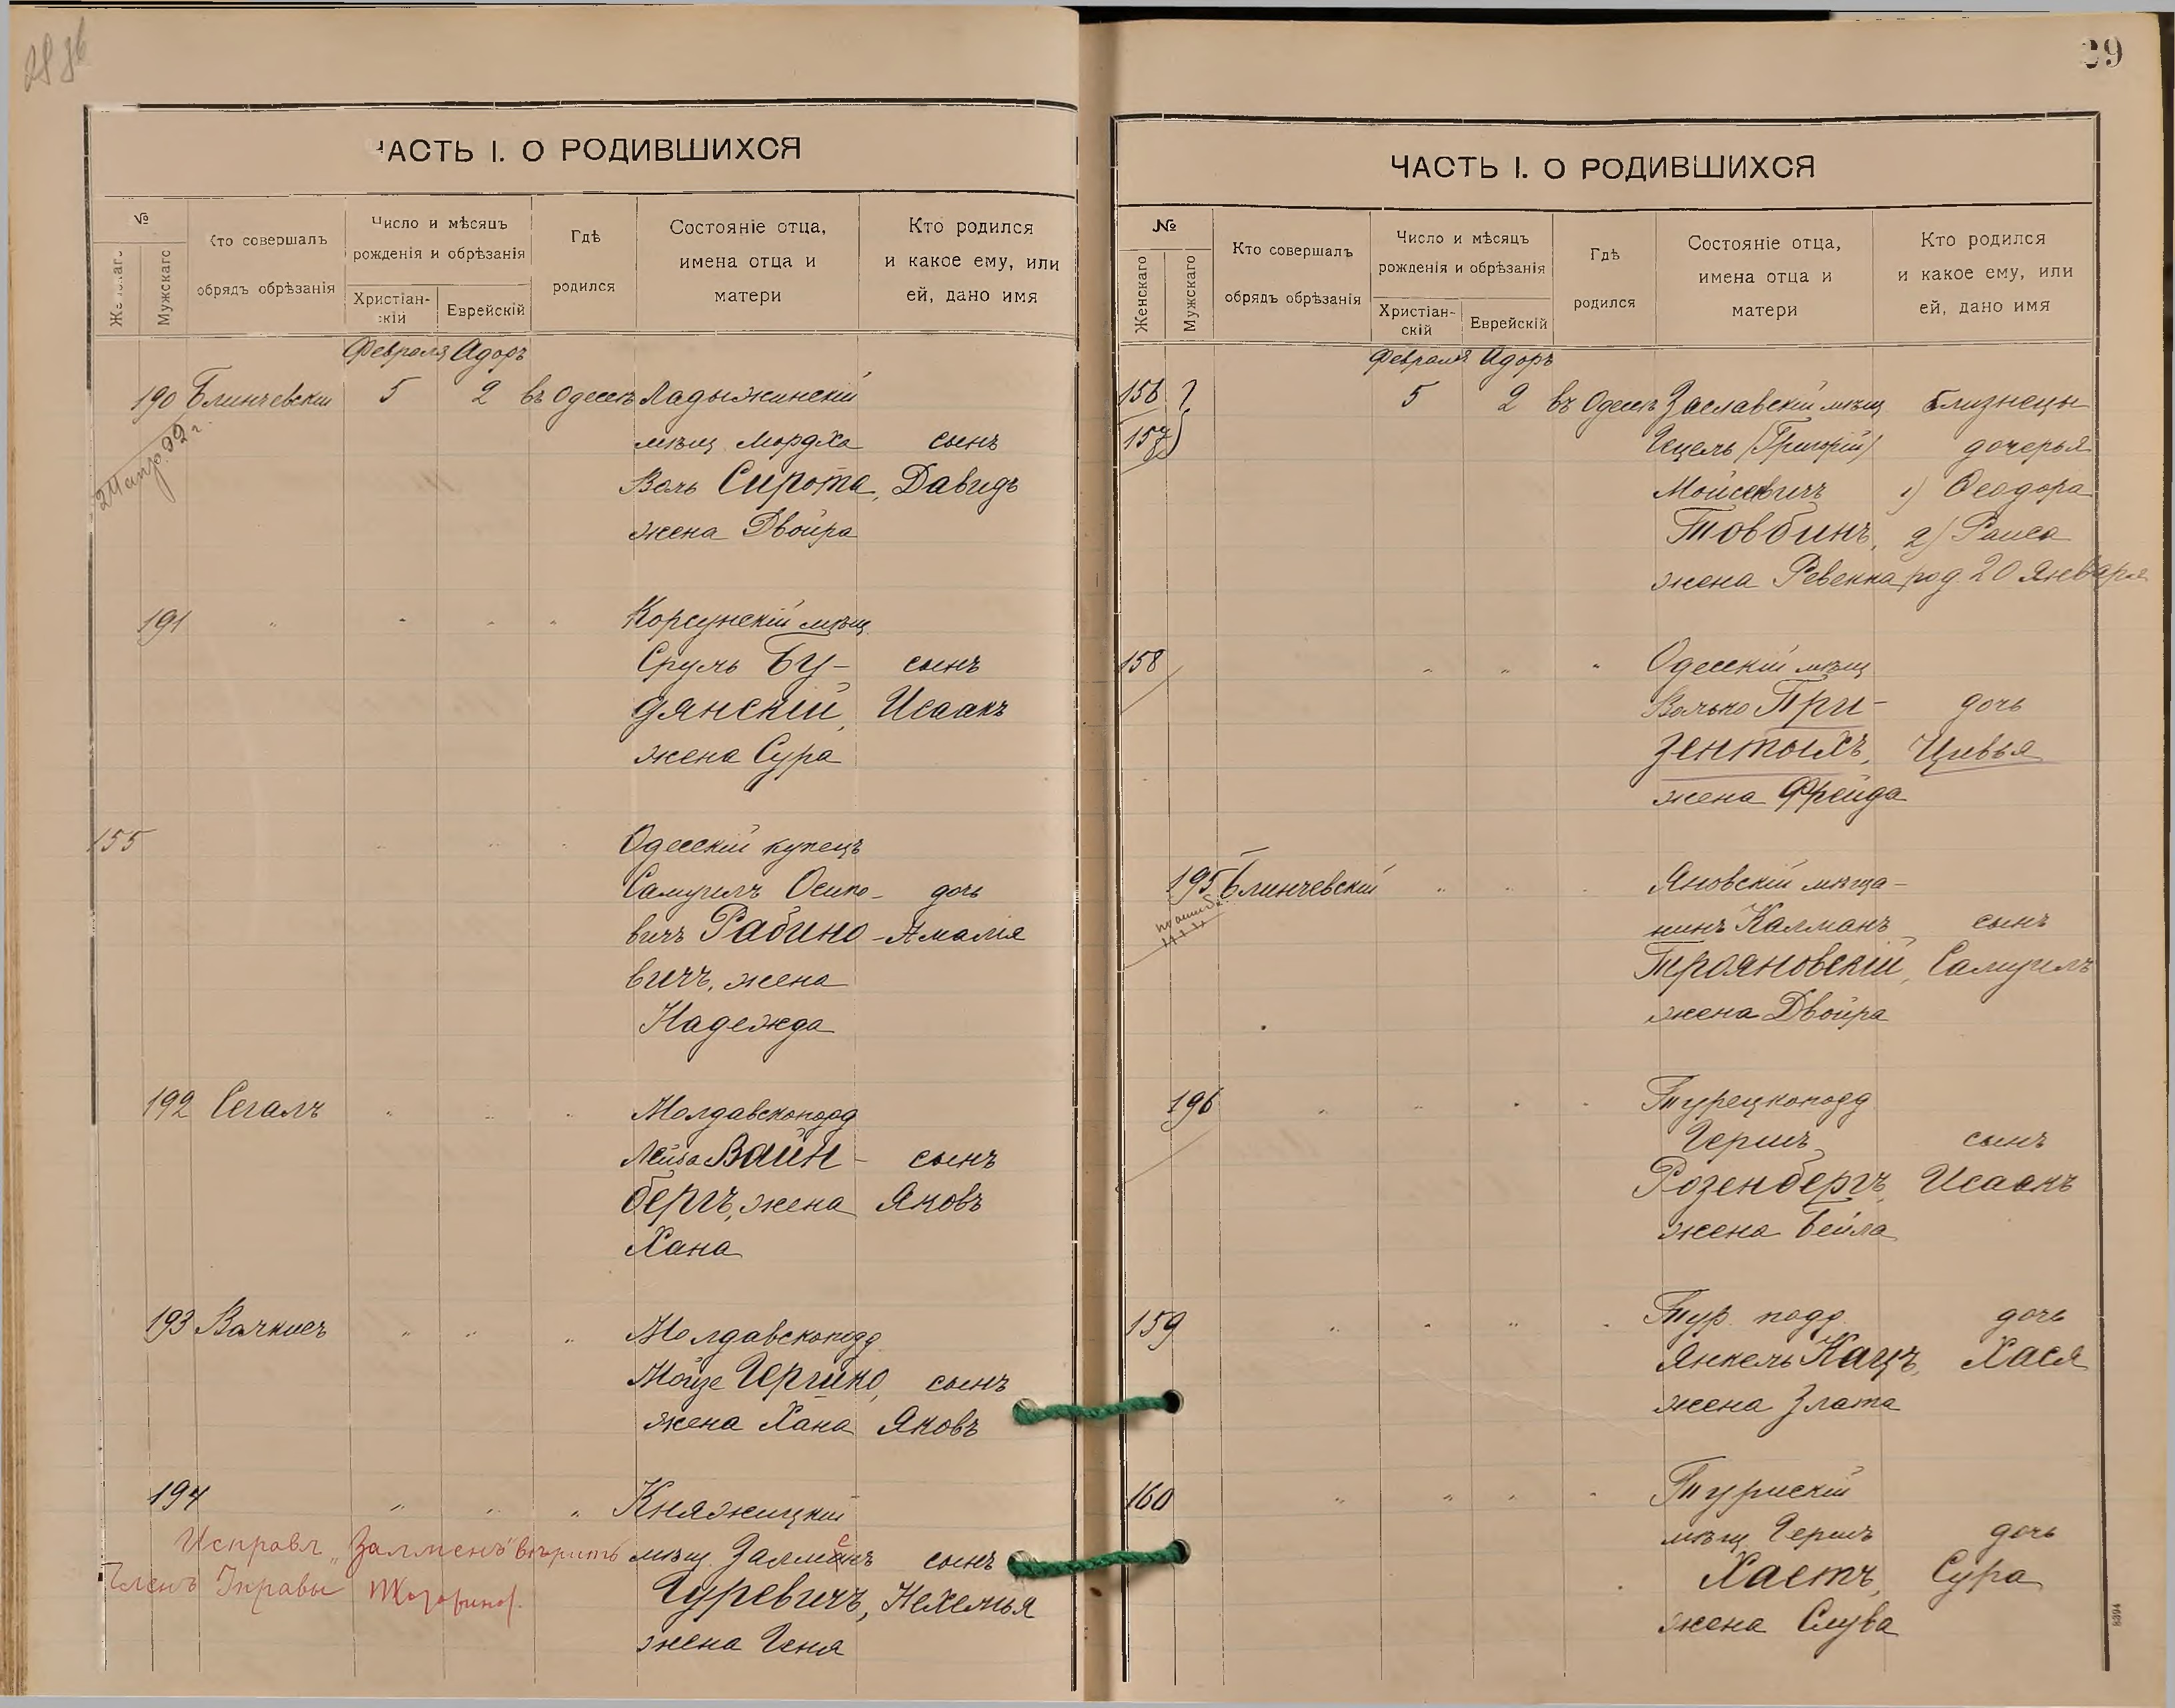 29
ЧАСТЬ I. О РОДИВШИХСЯ
№
Женскаго
Мужскаго
Кто совершалъ
обрядъ обрѣзанія
Число и мѣсяцъ
рожденія и обрѣзанія
Христіан-
скій
Еврейскій
Гдѣ
родился
Состояніе отца,
имена отца и
матери
Кто родился
и какое ему, или
ей, дано имя
Февраля Адоръ
190 Блинчевскій 5 2 въ Одессѣ Ладыжинскій
мѣщ. Мордха сынъ
Воль Сирота, Давидъ
жена Двойра
191 " " " " Корсунскій мѣщ
Сруль Бу- сынъ
дянскій, Исаакъ
жена Сура
155 " " " Одесскій купецъ
Самуилъ Осипо- дочь
вичъ Рабино- Амалія
вичъ, жена
Надежда
192 Сегалъ " " " Молдавскоподд
Лейза Вайн- сынъ
бергъ, жена Яковъ
Хана
193 Вачкисъ " " " Молдавскоподд
Мойзе Гершко, сынъ
жена Хана Яковъ
194 " " " Княжицкій
Исправл. "Залменъ" вѣрить мѣщ. Залменъ сынъ
Членъ Управы
Гуревичъ, Нехемья
жена Геня
ЧАСТЬ I. О РОДИВШИХСЯ
№
Женскаго
Мужскаго
Кто совершалъ
обрядъ обрѣзанія
Число и мѣсяцъ
рожденія и обрѣзанія
Христіан-
скій
Еврейскій
Гдѣ
родился
Состояніе отца,
имена отца и
матери
Кто родился
и какое ему, или
ей, дано имя
Февраля Адоръ
156 5 2 въ Одессѣ Заславскій мѣщ близнецы
157 Гецель (Григорій) дочерья
Мойсеевичъ 1) Ѳеодора
Товбинъ, 2) Раиса
жена Ревекка род 20 Января
158 " " " Одесскій мѣщ
Волько При- дочь
зентыхъ, Цивья
жена Фрейда
195 Блинчевскій " " " Яновскій мѣща-
нинъ Калманъ сынъ
Трояновскій, Самуилъ
жена Двойра
196 " " " " Турецкоподд
Гершъ сынъ
Розенбергъ, Исаакъ
жена Бейла
159 " " " " Тур. подд. дочь
Янкель Кацъ, Хася
жена Злата
160 " " " " Турискій
мѣщ Гершъ дочь
Хастъ, Сура
жена Слува
8394